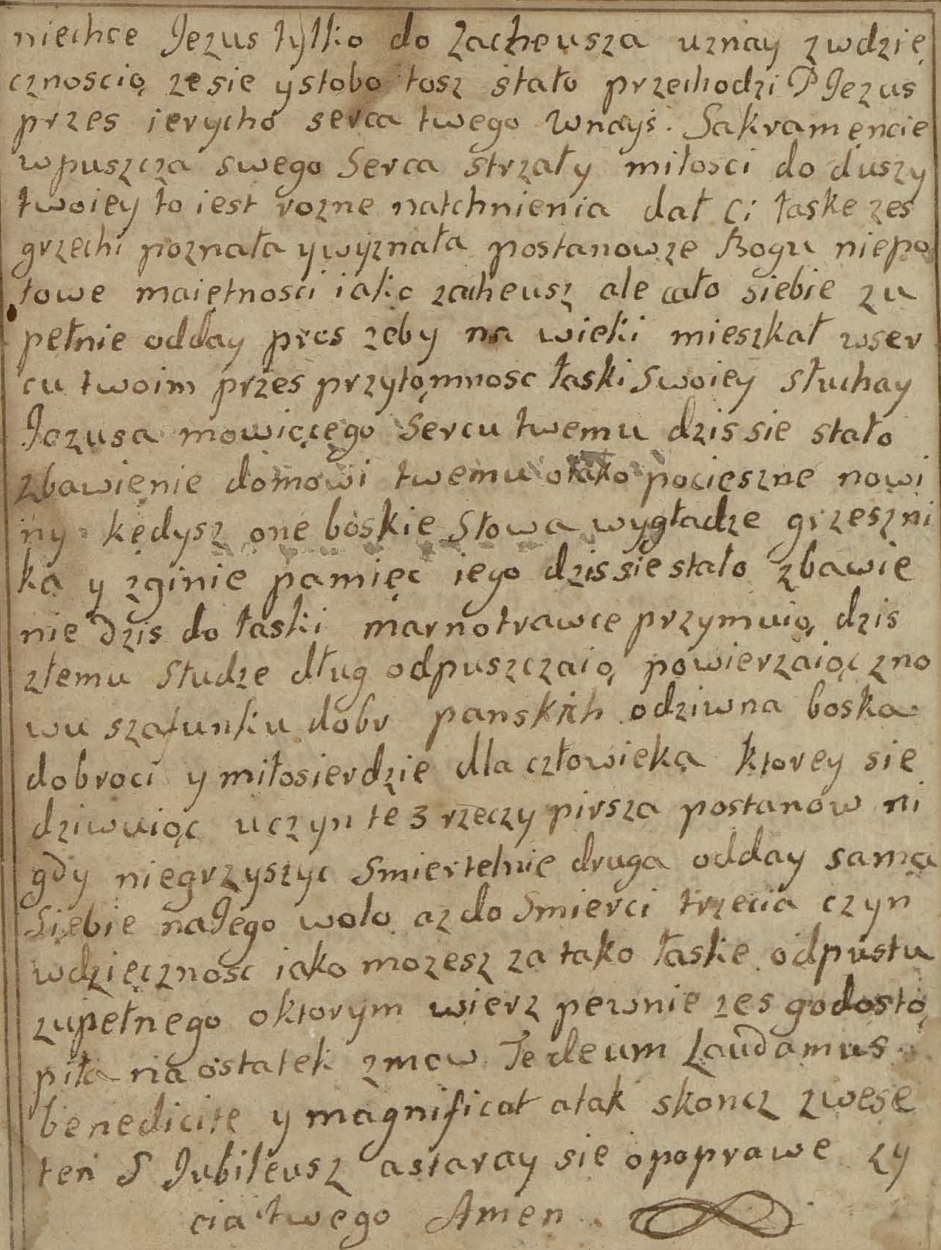 niechce Jezus tylko do Zacheusza uznay zwdzię
cznoscią ze sie ystobo tosz stało przechodzi P Jezus
przes ierycho serca twego wnayś. Sakramęncie
wpuszcza swego Serca strzały miłosci do duszy
twoiey to iest rozne natchnienia dał ci łaske zes
grzechi poznała ywyznała postanowze Bogu niepo
łowe maiętnosci iako zacheusz ale cało siebie zu
pełnie odday pros zeby na wieki mieszkał wser
cu twoim przes przytomnosc łaski Swoiey słuchay
Jezusa mowiącego Sercu twemu dzis sie stało
zbawięnie domowi twemu o iako pocieszne nowi
ny kędysz one boskie Słowa wygładze grzeszni
ka y zginie pamięc iego dzis się stało zbawie
nie dzis do łaski marnotrawce przymuią dzis
złemu studze dług odpuszczaią powierzaiąc zno
wu szafunku dobr panskich odziwna boska
dobroci y miłosierdzie dla człowieka ktorey sie
dziwuiąc uczyn te 3 rzeczy pirsza postanow ni
gdy niegrzyszyc smiertelnie druga odday sama
siebie naJego wolo az do Smierci trzecia czyn
wdzięcznosc iako mozesz za tako łaske odpustu
zupełnego oktorym wierz pewnie zes godosto
piła na ostatek zmow Te deum Laudamus
benedicite y magnificat atak skoncz zwese
łen S Jubileusz astaray sie opoprawe zy
cia twego Amen